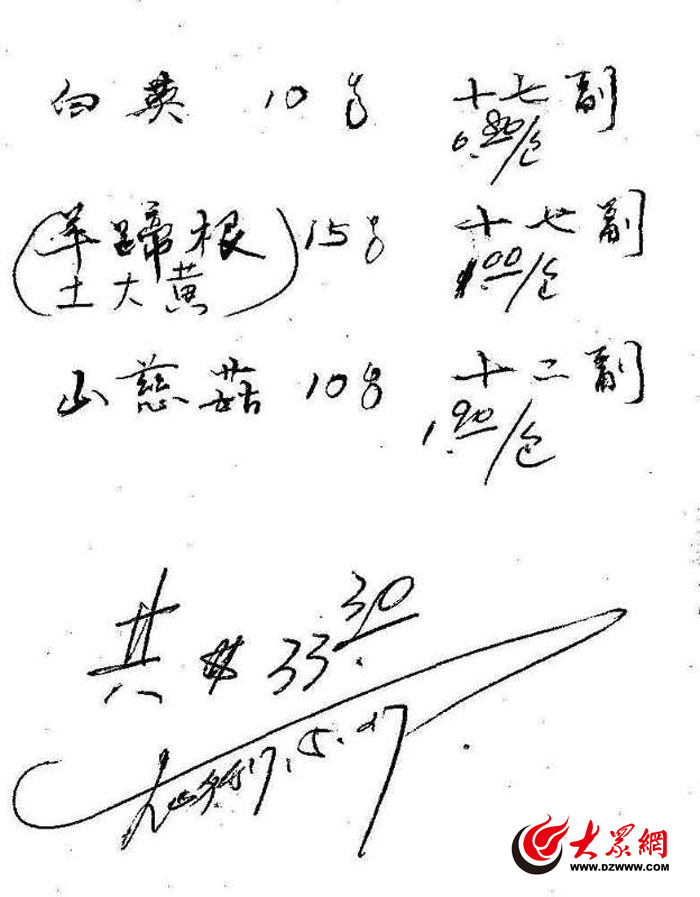 白英 10g 十七副
0.80/包
(羊蹄根 15g 十七副
土大黄) 1.00/包
山慈菇 10g 十二副
1.90/包
共 33.30
17.5.27
大眾網
WWW.DZWWW.COM